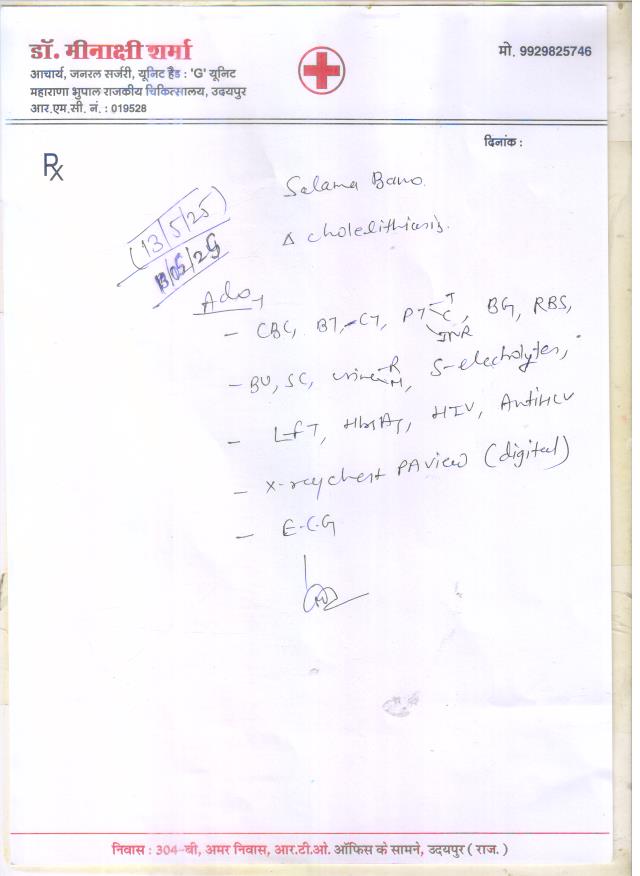 डॉ. मीनाक्षी शर्मा
आचार्य, जनरल सर्जरी, यूनिट हैड : 'G' यूनिट
महाराणा भुपाल राजकीय चिकित्सालय, उदयपुर
आर.एम.सी. नं. : 019528
मो. 9929825746
दिनांक :
Rx
Salama Bano.
(13/5/25)
13/05/25
Δ cholelithiasis.
Adv
- CBC, BT, CT, PT T C INR, BG, RBS,
- BU, SC, urine R M, S-electrolytes,
- LFT, HbsAg, HIV, AntiHCV
- X-ray chest PA view (digital)
- E.C.G
निवास : 304-बी, अमर निवास, आर.टी.ओ. ऑफिस के सामने, उदयपुर ( राज. )